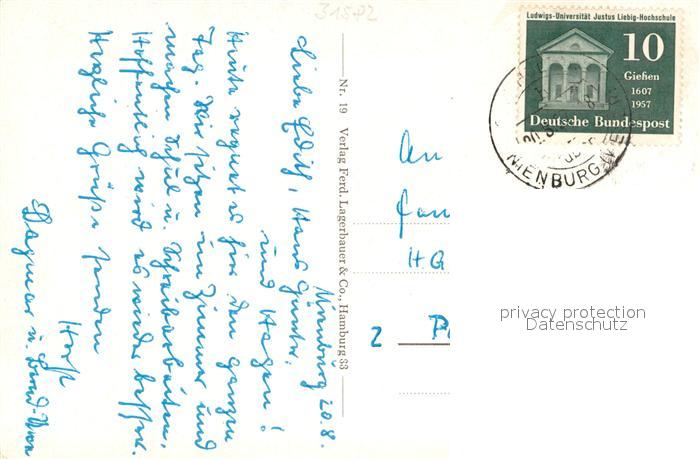 315-92
Nienburg 20.8.
Liebe Edith, Hans Günter.
und Hagen!
Heute regnet es für den ganzen
Tag. Wir sitzen im Zimmer und
machen Schul u. Schreibarbeiten.
Hoffentlich wird es wieder besser.
Herzliche Grüße senden
Horst
Dagmar u.
Nr. 19 Verlag Ferd. Lagerbauer & Co., Hamburg 33
Ludwigs-Universität Justus Liebig-Hochschule
10
Gießen
1607
1957
Deutsche Bundespost
NIENBURG
An
Fam
H.G
2
privacy protection
Datenschutz